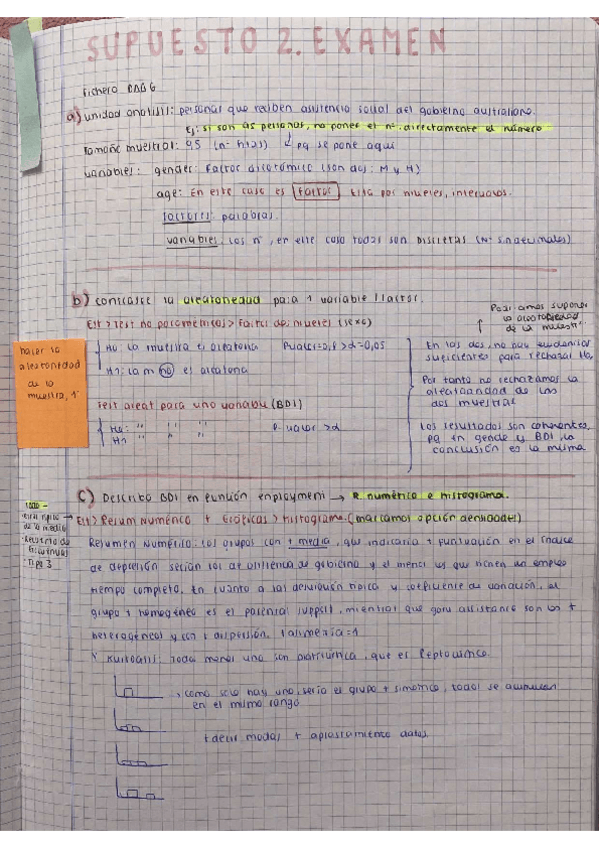 SUPUESTO 2. EXAMEN
Fichero
a) unidad analisis: personas que reciben asistencia social del gobierno australiano.
Ej: si son 95 personas, no poner el nº. directamente el número
Tamaño muestral: 95 (nº filas) ↳ pq se pone aquí
variables: gender: Factor dicotómico (son dos: M y H)
age: En este caso es Factor. Esta por niveles, intervalos.
factores: palabras.
variables: los nº, en este caso todas son Discretas (Nº s.naturales)
b) contraste la aleatoriedad para 1 variable 1 factor.
Podriamos suponer
la aleatoriedad
de la muestra
Est > Test no parametricos > Factor dos niveles (sexo)
hacer la
aleatoriedad
de la
muestra, 1º
H0: La muestra es aleatoria
H1: La m no es aleatoria
Test aleat para uno variable (BDI)
H0: " " " "
H1 " " " "
P-valor > α
En las dos, no hay evidencias
suficientes para rechazar H0.
Por tanto no rechazamos la
aleatoriedad de las
dos muestras
Los resultados son coherentes,
pq en gender y BDI, la
conclusión es la misma
c) Describo BDI en función employment → R. numérico e histograma.
Est > Resum Numérico + Gráficas > histograma. (marcamos opción densidades)
de la media
Tipo 3
Resumen Numérico: Los grupos con + media, que indicaria + puntuación en el índice
de depresión serian los de asistencia de gobierno y el menor los que tienen un empleo
tiempo completo. En cuanto a las desviación típica y coeficiente de variación, el
grupo + homogéneo es el parental support, mientras que gov assistance son los +
heterogéneos y con + dispersión. 1 asimetria = 1
Y Kurtosis: Todas menos una son platicurtica, que es leptocurtica.
, como solo hay uno, seria el grupo + simetrico, todos se acumulan
en el mismo rango
+ decir modas + aplastamiento datos.